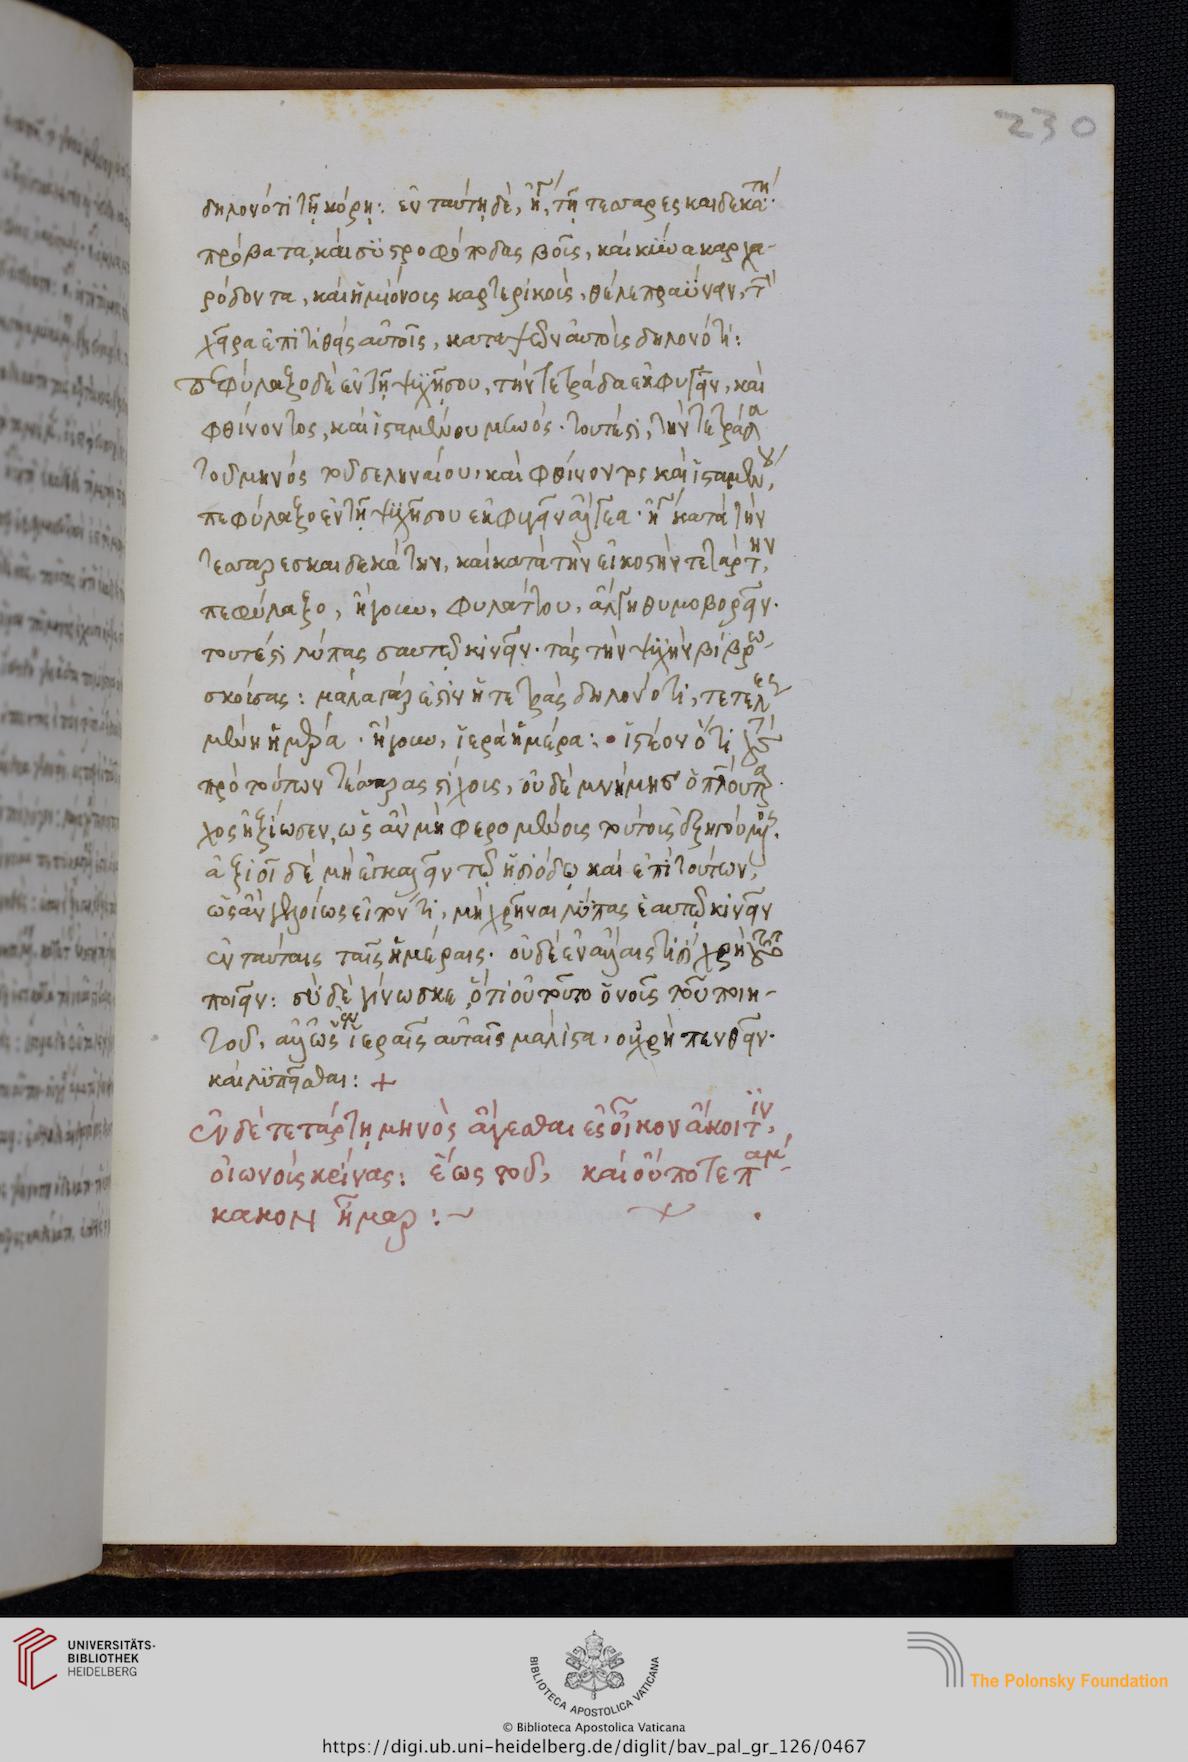 230
δηλονότι τῇ κόρῃ: ἐν ταύτῃ δὲ, ἤγουν τῇ τεσσαρεσκαιδεκάτῃ
πρόβατα, καὶ στροφόποδας βοῦς, καὶ κύνα καρχα-
ρόδοντα, καὶ ἡμιόνους καρτερικοὺς, θέλε πραΰνειν, τὴν
χεῖρα ἐπιτιθεὶς αὐτοῖς, κατεψῶν αὐτοὺς δηλονότι:
πεφύλαξο δὲ ἐν τῇ ψυχῇ σου, τὴν τετράδα ἐκφυγεῖν, καὶ
φθίνοντος, καὶ ἱσταμένου μηνός. τουτέστι, τὴν τετράδα
τοῦ μηνός τοῦ σεληναίου, καὶ φθίνοντος καὶ ἱσταμένου,
πεφύλαξο ἐν τῇ ψυχῇ σου ἐκφυγεῖν ἄλγεα. ἤγουν κατὰ τὴν
τεσσαρεσκαιδεκάτην, καὶ κατὰ τὴν εἰκοστὴν τετάρτην,
πεφύλαξο, ἤγουν, φυλάττου, ἄλγη θυμοβορεῖν.
τουτέστι λύπας σαυτῷ κινεῖν. τὰς τὴν ψυχὴν βιβρω-
σκούσας: μάλα γάρ ἐστιν ἡ τετρὰς δηλονότι, τετελεσ-
μένη ἡμέρα. ἤγουν, ἱερὰ ἡμέρα: ἰστέον ὅτι
πρὸ τούτων τέσσαρας στίχους, οὐδὲ μνήμης ὁ πλούταρ-
χος ἠξίωσεν, ὡς ἂν μὴ φερομένους τούτοις
ἀξιοῖ δὲ μὴ ἐγκαλεῖν τῷ ἡσιόδῳ καὶ ἐπὶ τούτων,
ὡς ἂν γελοίως εἰπόντι, μὴ χρῆναι λύπας ἑαυτῷ κινεῖν
ἐν ταύταις ταῖς ἡμέραις. οὐδὲ ἐν ἄλλαις χρὴ τοῦτο
ποιεῖν: σὺ δὲ γίνωσκε, ὅτι οὐ τοῦτο ὁ νοῦς τοῦ ποιη-
τοῦ, ἀλλ' ὡς ἱεραῖς αὐταῖς μάλιστα, οὐ χρὴ πενθεῖν.
καὶ λυπεῖσθαι: +
ἐν δὲ τετάρτῃ μηνὸς ἄγεσθαι ἐς οἶκον ἄκοιτιν,
οἰωνοὺς κρίνας: ἕως τοῦ, καὶ οὔποτε παμ-
κακον ἦμαρ:~
UNIVERSITÄTS-
BIBLIOTHEK
HEIDELBERG
BIBLIOTECA APOSTOLICA VATICANA
The Polonsky Foundation
© Biblioteca Apostolica Vaticana
https://digi.ub.uni-heidelberg.de/diglit/bav_pal_gr_126/0467